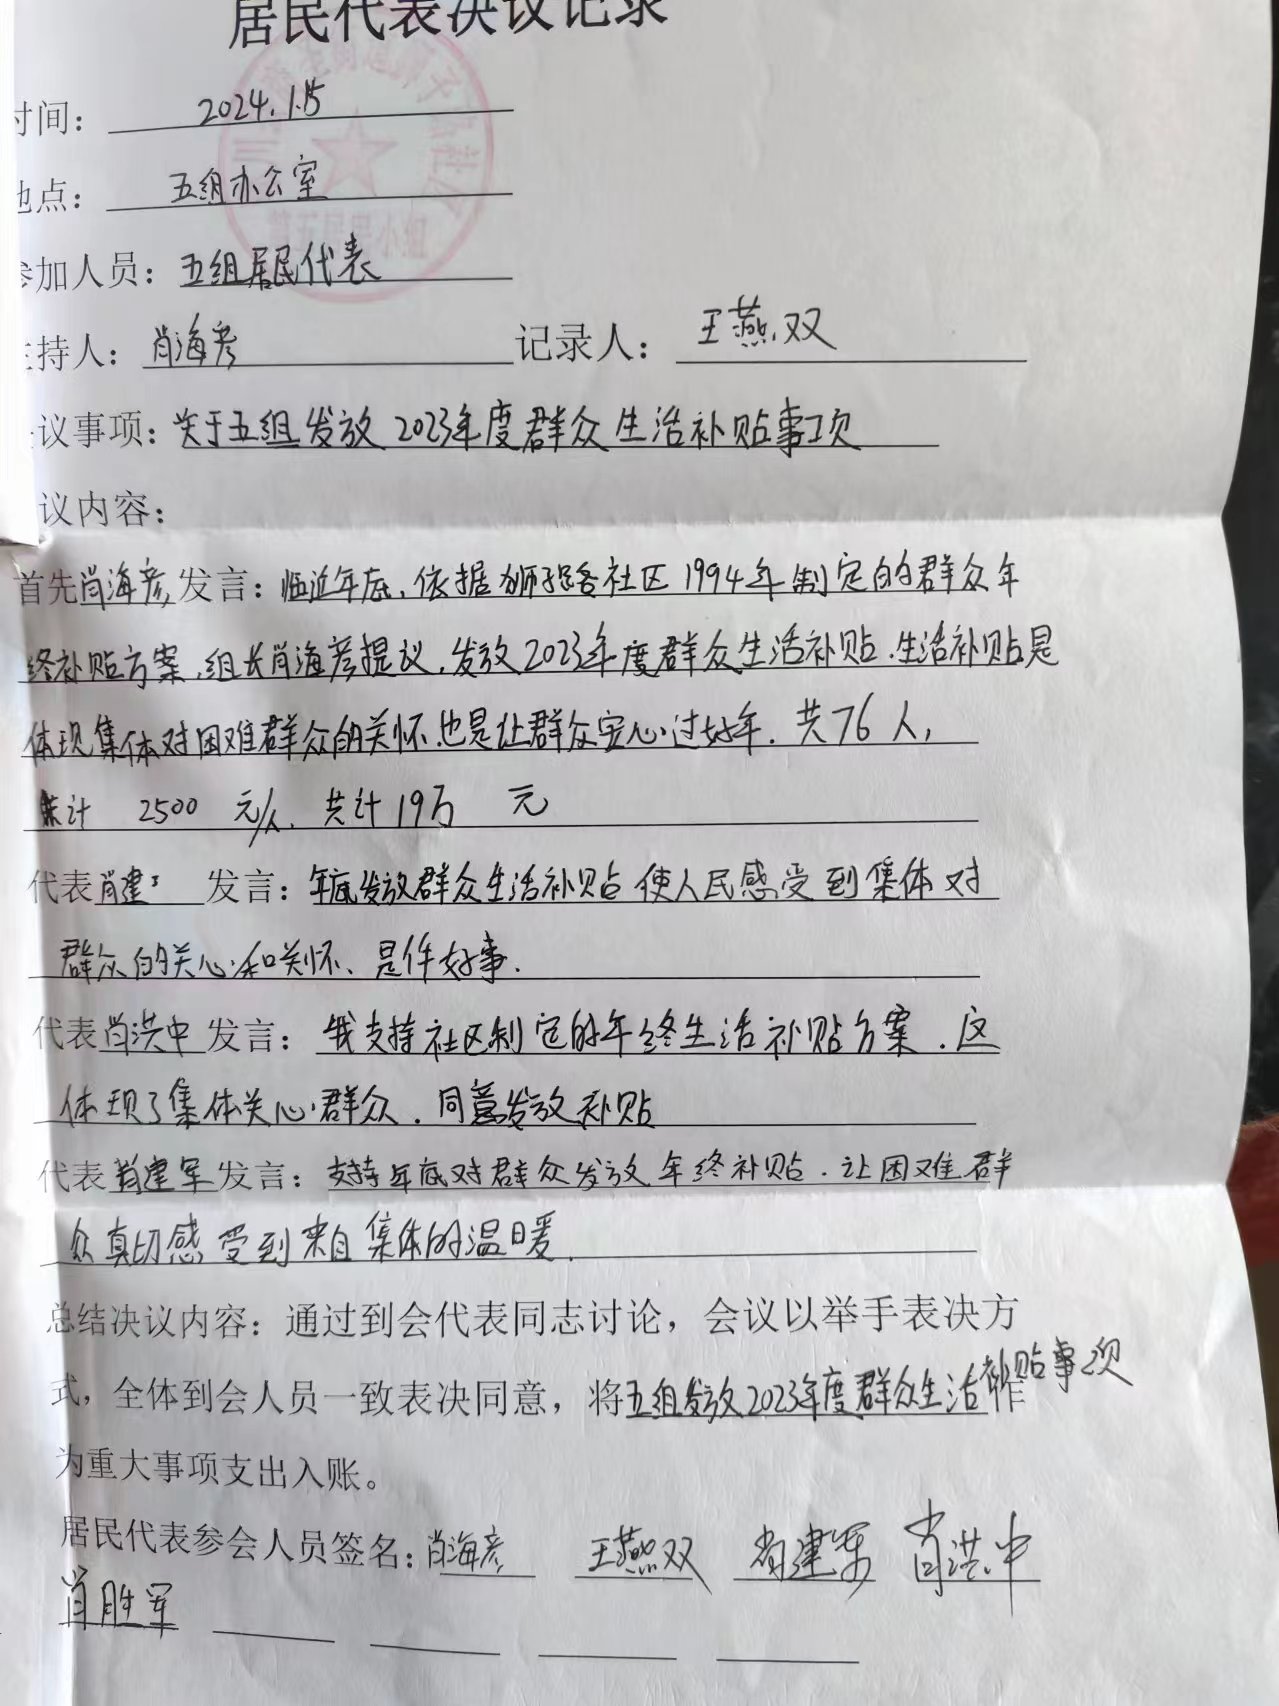 居民代表决议记录
时间： 2024.1.15
地点： 五组办公室
第五居民小组
参加人员：五组居民代表
主持人：肖海彦 记录人：王燕双
议事项：关于五组发放2023年度群众生活补贴事项
议内容：
首先肖海彦发言：临近年底，依据狮子路社区1994年制定的群众年
终补贴方案，组长肖海彦提议，发放2023年度群众生活补贴．生活补贴是
体现集体对困难群众的关怀也是让群众安心过好年．共76人，
计 2500 元/人．共计19万 元
代表肖建 发言：年底发放群众生活补贴使人民感受到集体对
群众的关心和关怀、是件好事．
代表肖洪中发言：我支持社区制定的年终生活补贴方案．这
体现了集体关心群众．同意发放补贴
代表肖建军发言：支持年底对群众发放年终补贴．让困难群
众真切感受到来自集体的温暖．
总结决议内容：通过到会代表同志讨论，会议以举手表决方
式，全体到会人员一致表决同意，将五组发放2023年度群众生活补贴事项作
为重大事项支出入账。
居民代表参会人员签名：肖海彦 王燕双 肖建军 肖洪中
肖胜军